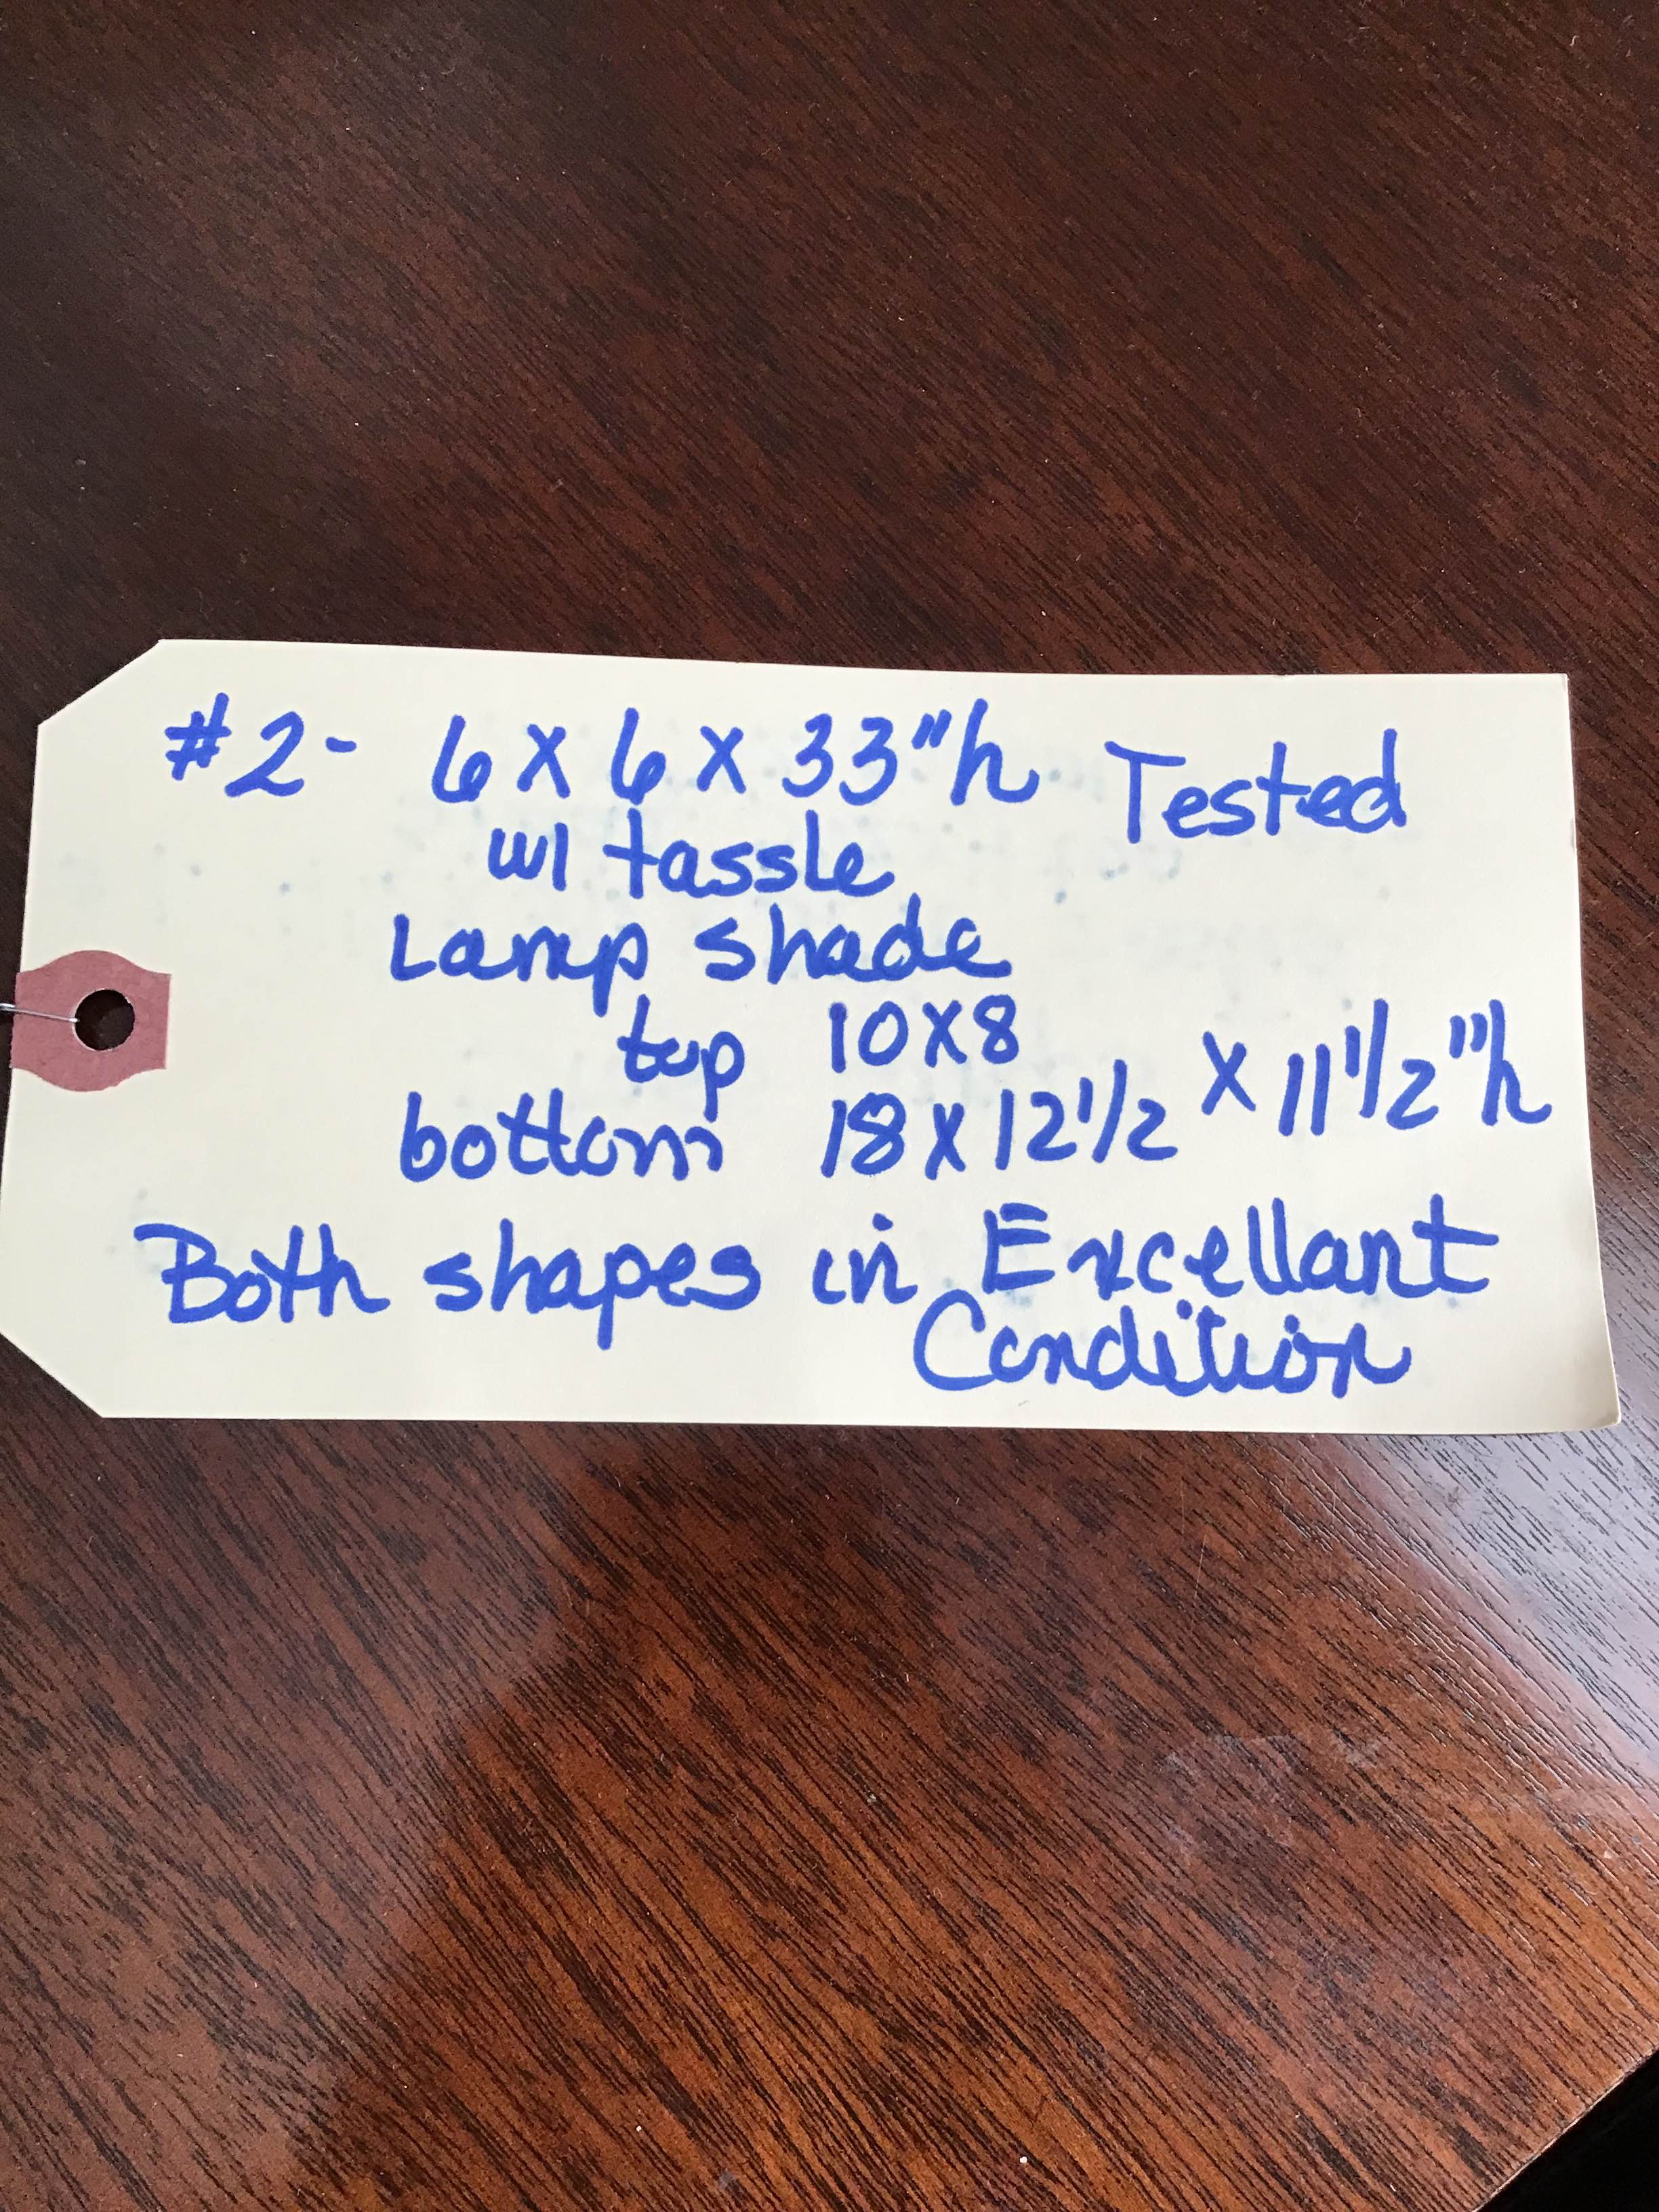 #2- 6 X 6 X 33"h Tested
w/ tassle
Lamp shade
top 10X8
bottom 18 X 12 1/2 X 11 1/2"h
Both shapes in Excellant
Condition